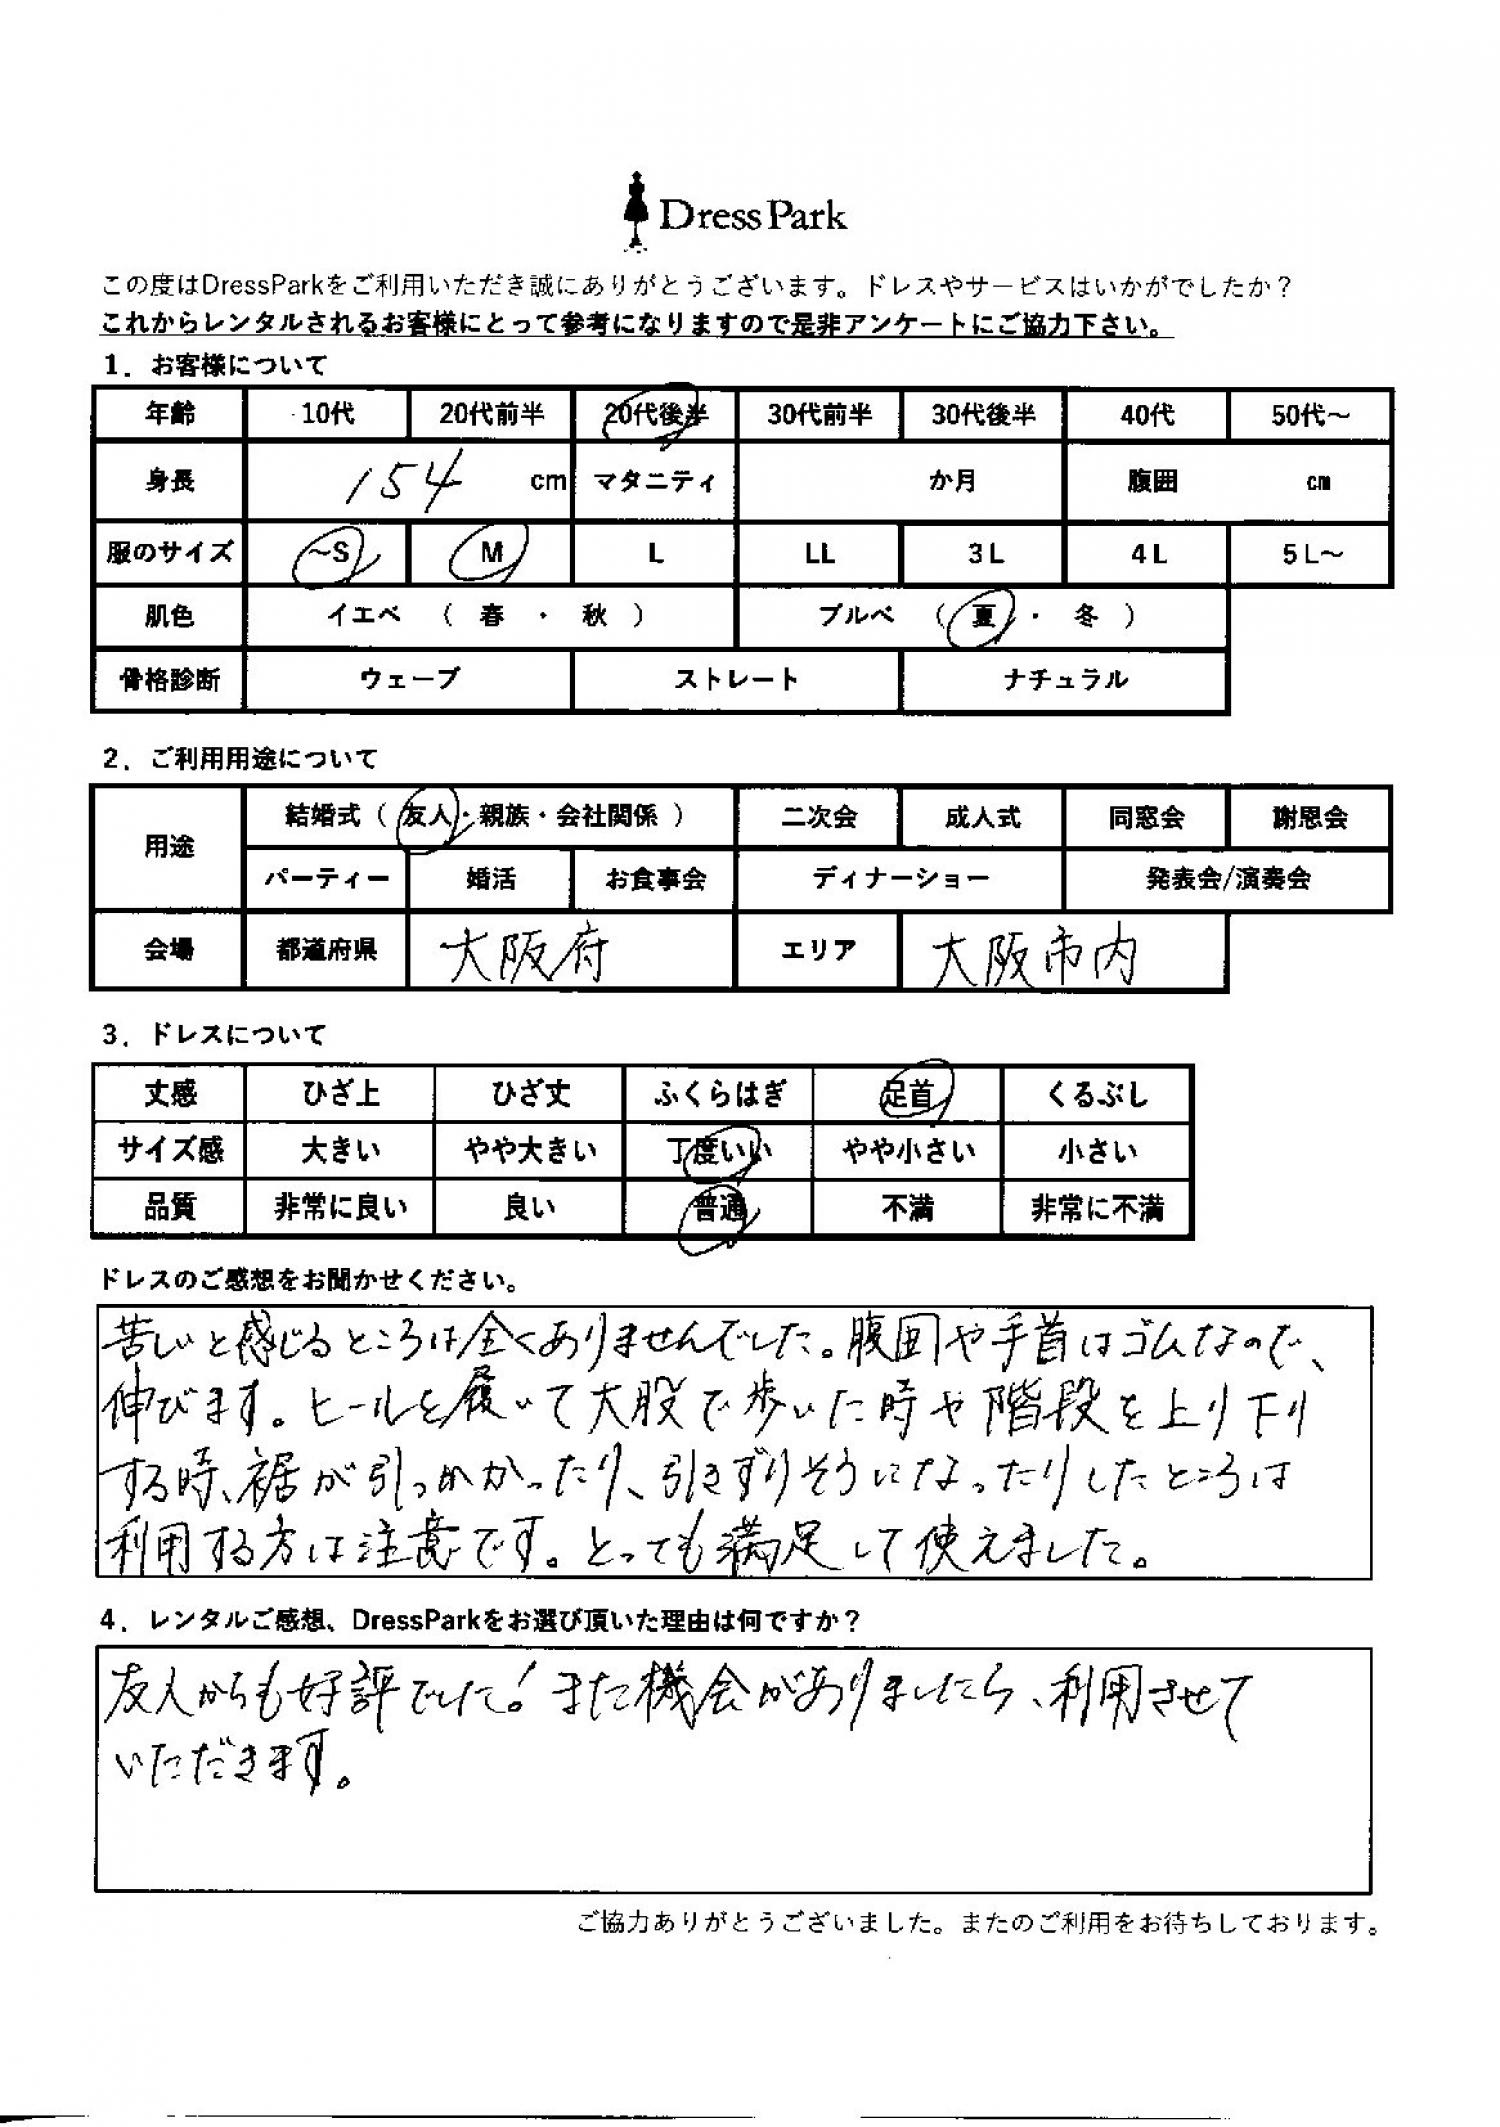 Dress Park
この度はDressParkをご利用いただき誠にありがとうございます。ドレスやサービスはいかがでしたか？
これからレンタルされるお客様にとって参考になりますので是非アンケートにご協力下さい。
1．お客様について
年齢 10代 20代前半 20代後半 30代前半 30代後半 40代 50代～
身長 154 cm マタニティ か月 腹囲 cm
服のサイズ ～S M L LL 3L 4L 5L～
肌色 イエベ （ 春 ・ 秋 ） ブルベ （ 夏 ・ 冬 ）
骨格診断 ウェーブ ストレート ナチュラル
2．ご利用用途について
用途 結婚式（ 友人・親族・会社関係 ） 二次会 成人式 同窓会 謝恩会
パーティー 婚活 お食事会 ディナーショー 発表会/演奏会
会場 都道府県 大阪府 エリア 大阪市内
3．ドレスについて
丈感 ひざ上 ひざ丈 ふくらはぎ 足首 くるぶし
サイズ感 大きい やや大きい 丁度いい やや小さい 小さい
品質 非常に良い 良い 普通 不満 非常に不満
ドレスのご感想をお聞かせください。
苦しいと感じるところは全くありませんでした。腹囲や手首はゴムなので、
伸びます。ヒールを履いて大股で歩いた時や階段を上り下り
する時、裾が引っかかったり、引きずりそうになったりしたところは
利用する方は注意です。とっても満足して使えました。
4．レンタルご感想、DressParkをお選び頂いた理由は何ですか？
友人からも好評でした！また機会がありましたら、利用させて
いただきます。
ご協力ありがとうございました。またのご利用をお待ちしております。